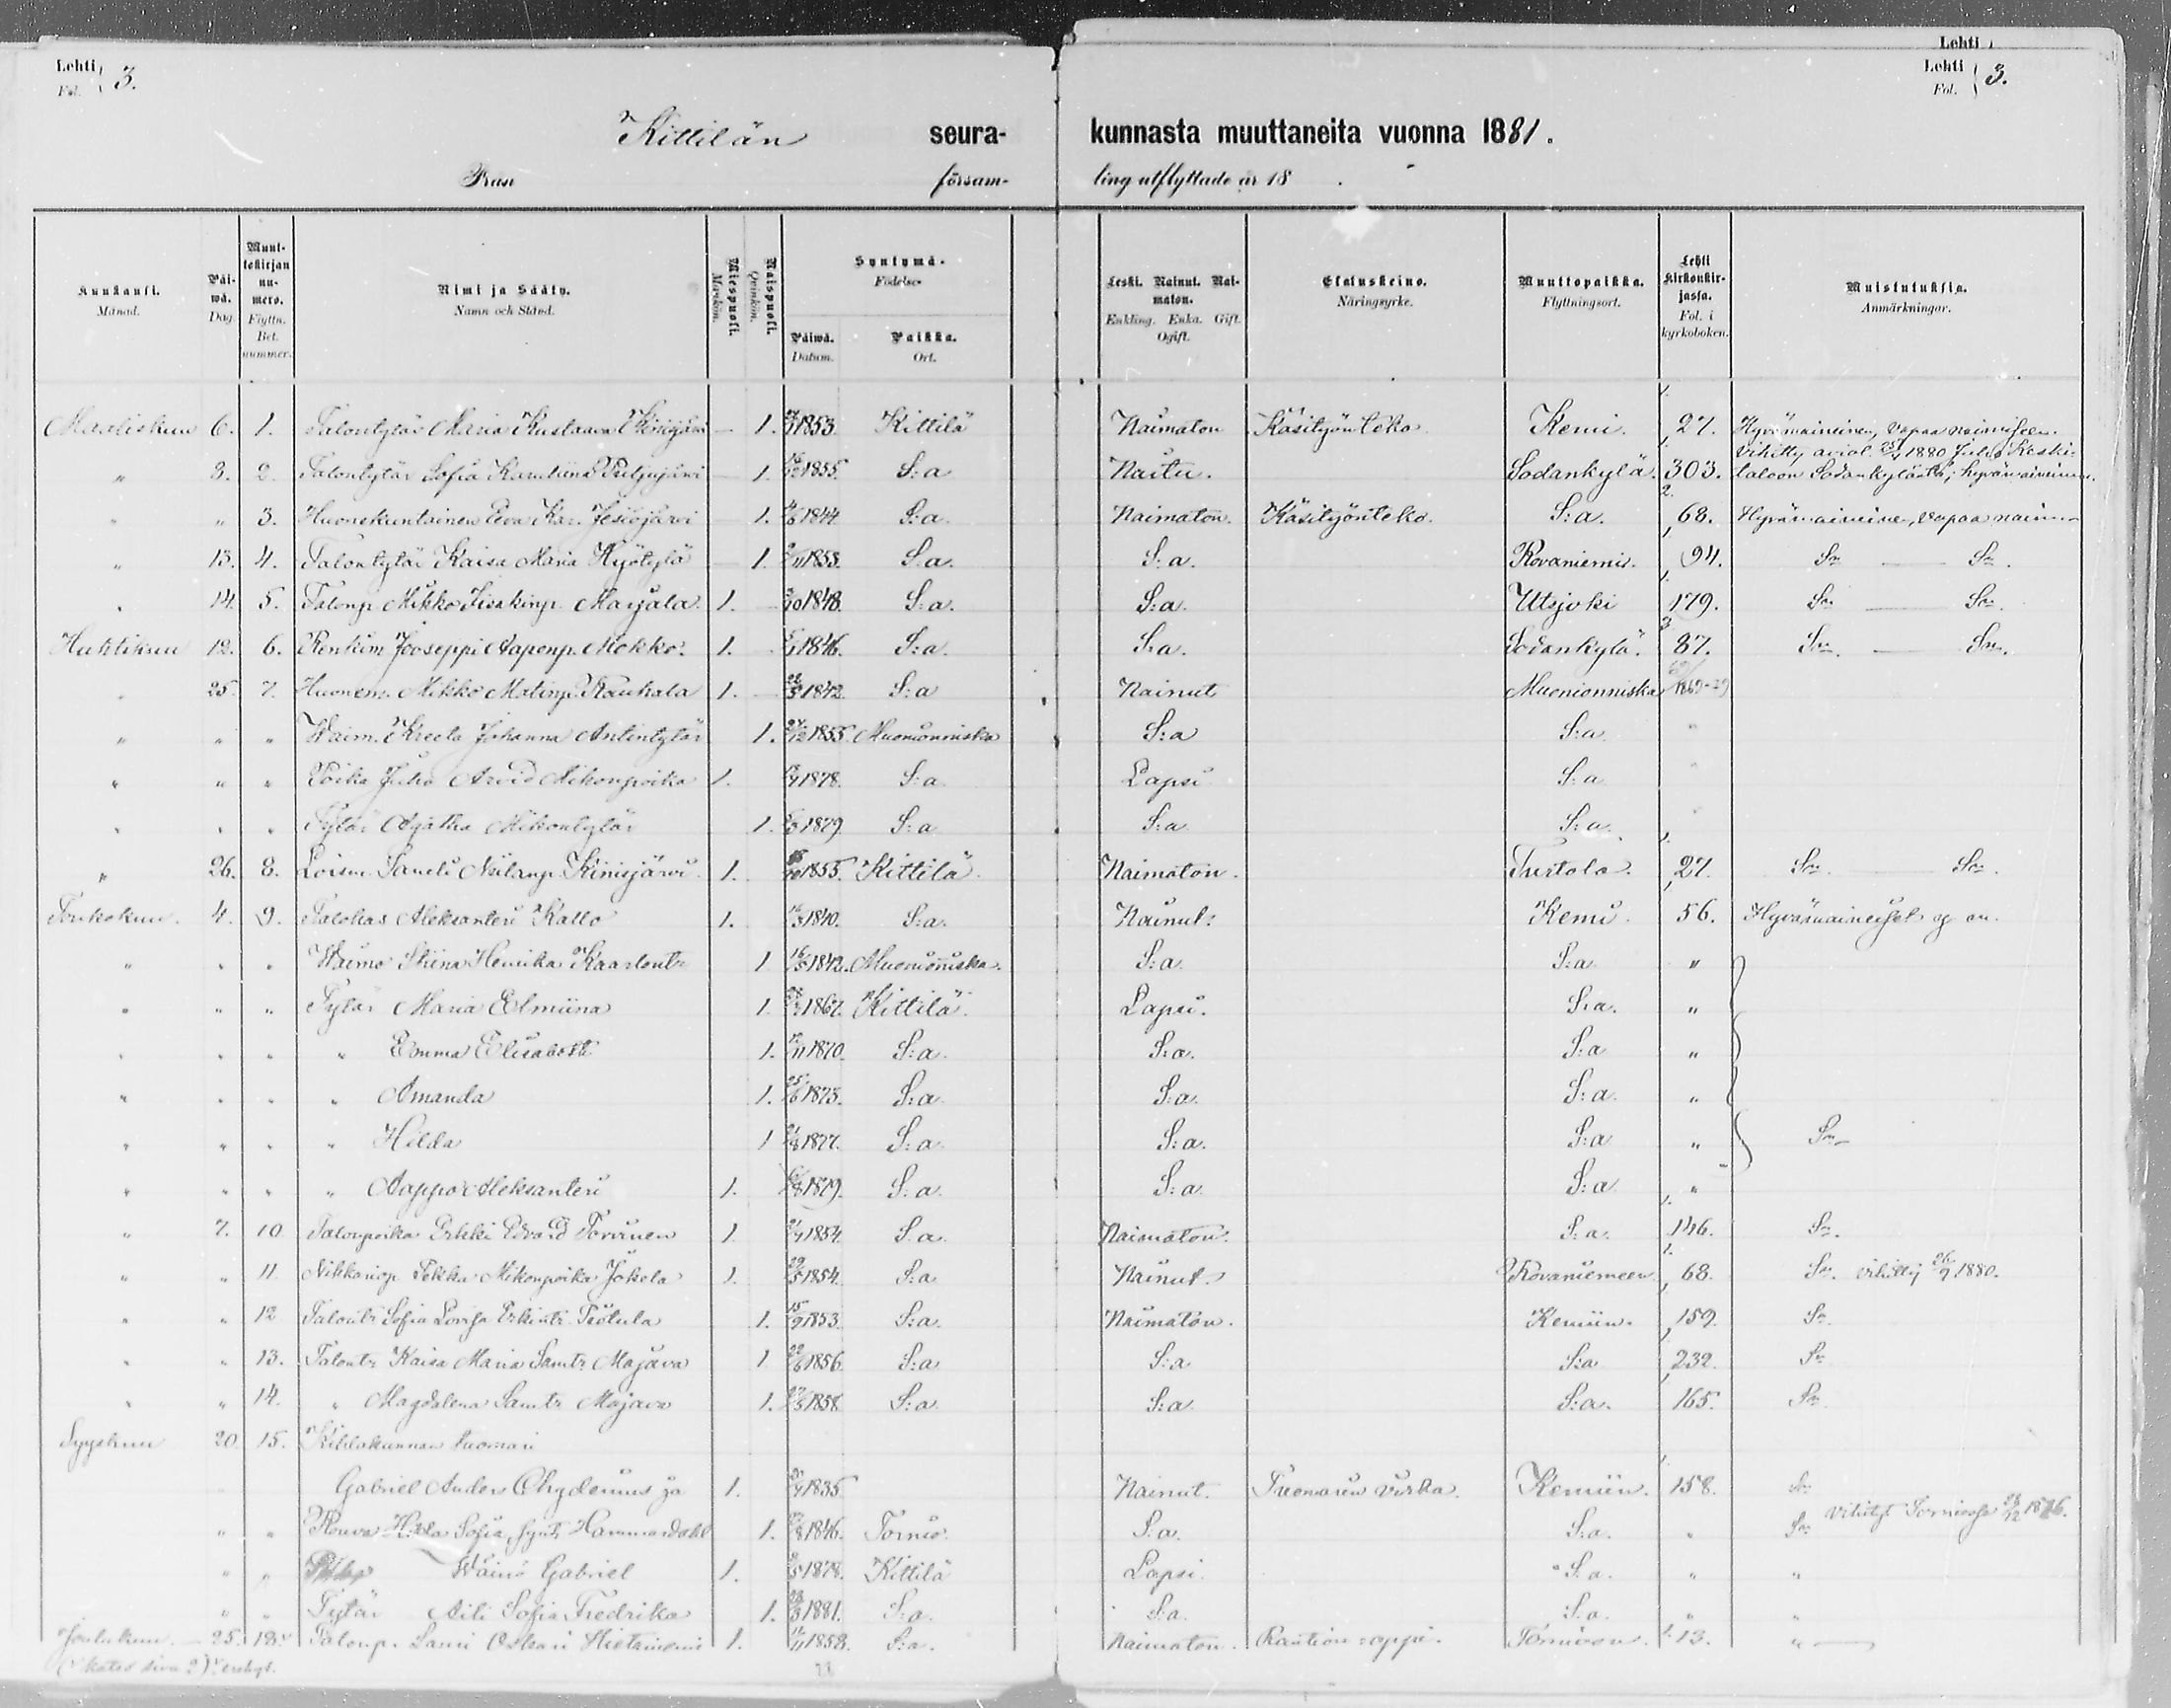 Lehti
Lehti Fol. 3.
Lehti Fol. 3.
Kittilän seura- kunnasta muuttaneita vuonna 1881.
Från försam- ling utflyttade år 18 .
Kuukausi. Månad.
Päi-wä. Dag.
Muut-tokirjan nu-mero. Flyttn. Bet. nummer.
Nimi ja Sääty. Namn och Stånd.
Miespuoli. Mankön.
Naispuoli. Qvinkön.
Syntymä- Födelse-
Päiwä. Datum.
Paikka. Ort.
Leski. Nainut. Nai-maton. Enkling. Enka. Gift. Ogift.
Elatuskeino. Näringsyrke.
Muuttopaikka. Flyttningsort.
Lehti kirkonkir-jassa. Fol. i kyrkoboken.
Muistutuksia. Anmärkningar.
Maaliskuu 6. 1. Talontytär Maria Kustaava Kinisjärvi 1. 1853. Kittilä Naimaton Käsityön teko Kemi. 27. Hyvämaineinen, vapaa naimiseen.
" 3. 2. Talontytär Sofia Karoliina Puljujärvi 1. 1855. S:a Naitu. Sodankylä. 303. Vihitty aviol. 1880 Juho Keski-taloon Sodankylästä; hyvämaineinen.
" " 3. Huonekuntainen Eeva Kar. Jesiöjärvi 1. 1844. S:a. Naimaton. Käsityönteko. S:a. 68. Hyvämaineinen, vapaa naim
" 13. 4. Talontytär Kaisa Maria Hyötylä 1. 1853. S:a. S:a. Rovaniemi. 94. Sn Sn.
" 14. 5. Talonp. Mikko Iisakinp. Marjala. 1. 1848. S:a. S:a. Utsjoki 179. Sn Sn.
Huhtikuu 12. 6. Renkim Jooseppi Aaponp. Mokko. 1. 1846. S:a. S:a. Sodankylä. 87. Sn. Sn.
" 25. 7. Huonem. Mikko Matinp. Raukala 1. 1842. S:a Nainut Muonionniska
" " " Waim. Kreeta Johanna Antintytär 1. 1855. Muonionniska S:a S:a "
" " " Poika Juho Arvid Mikonpoika 1. 1878. S:a Lapsi S:a "
" " " Tytär Agatha Mikontytär 1. 1879. S:a S:a S:a. "
" 26. 8. Loism. Sameli Niilanp. Kinisjärvi 1. 1855. Kittilä Naimaton. Turtola. 27. Sn. Sn.
Toukokuu. 4. 9. Talokas Aleksanteri Kallo 1. 1840. S:a. Nainut. Kemi. 56. Hyvämaineiset
" " " Waimo Stiina Henrika Kaarlontr 1 1842. Muonionniska. S:a S:a "
" " " Tytär Maria Elmiina 1. 1867. Kittilä. Lapsi. S:a. "
" " " " Emma Elisabetti 1. 1870. S:a. S:a. S:a "
" " " " Amanda 1. 1875. S:a. S:a. S:a. "
" " " " Hilda 1 1877. S:a S:a. S:a " Sn
" " " " Aappo Aleksanteri 1. 1879. S:a. S:a S:a "
" 7. 10 Talonpoika Erkki Edvard Torvinen 1 1854. S.a. Naimaton. S:a. 146. Sn.
" " 11. Pekka Mikonpoika Jokela 1. 1854. S:a Nainut. Rovaniemeen. 68. Sn. vihitty 26/9 1880.
" " 12 Talontr Sofia Lovisa Erkintr 1. 15/9 1853. S:a. Naimaton. Kemiin. 159. Sn
" " 13. Talontr Kaisa Maria Samtr Majava 1 1856. S:a S:a S:a 232. Sn
" " 14. " Magdalena Samtr Majava 1. 1858. S:a. S:a. S:a. 165. Sn
Syyskuu 20 15. Kihlakunnan tuomari
Gabriel Anders Chydenius ja 1. 1835 Nainut. Tuomarin virka. Kemiin. 158. Sn
" " Rouva Hilda Sofia, synt. Hammardahl 1. 1846. Tornio. S:a. S:a. " Sn Vihityt Torniossa 1876.
" " Wäinö Gabriel 1. 1878. Kittilä Lapsi. S.a. " "
" " Tytär Aili Sofia Fredrika 1. 1881. S:a. S:a S.a. " "
Joulukuu. 25. 18. Talonp. Lauri Oskari Hietaniemi 1. 1858. S:a. Naimaton. Raution oppi. Tornioon. 13. "
(katso sivu 2)